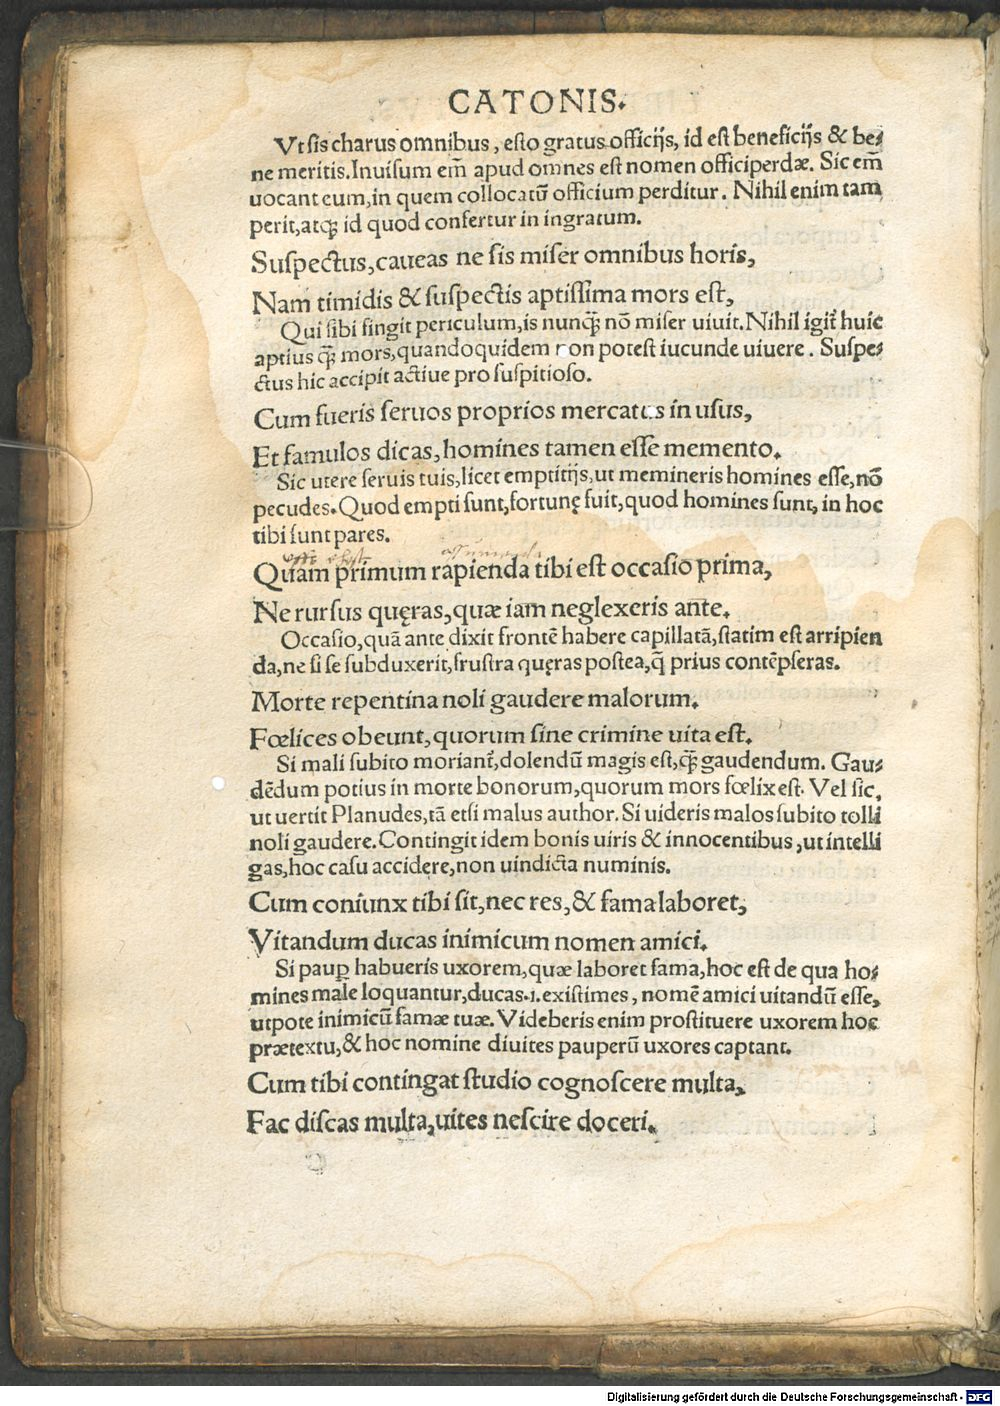 CATONIS.
Vt sis charus omnibus, esto gratus officijs, id est beneficijs & be⸗
ne meritis. Inuisum em̃ apud omnes est nomen officiperdæ. Sic em̃
uocant eum, in quem collocatũ officium perditur. Nihil enim tam
perit, atq́ꝫ id quod confertur in ingratum.
Suspectus, caueas ne sis miser omnibus horis,
Nam timidis & suspectis aptissima mors est,
Qui sibi fingit periculum, is nunq̃ꝫ nõ miser uiuit. Nihil igit᷑ huic
aptius q̃ꝫ mors, quandoquidem non potest iucunde uiuere. Suspe⸗
ctus hic accipit actiue pro suspitioso.
Cum fueris seruos proprios mercatus in usus,
Et famulos dicas, homines tamen esse memento.
Sic utere seruis tuis, licet emptitijs, ut memineris homines esse, nõ
pecudes. Quod empti sunt, fortunę fuit, quod homines sunt, in hoc
tibi sunt pares.
Quam primum rapienda tibi est occasio prima,
Ne rursus quęras, quæ iam neglexeris ante.
Occasio, quã ante dixit frontẽ habere capillatã, statim est arripien
da, ne si se subduxerit, frustra quęras postea, q̃ prius contẽpseras.
Morte repentina noli gaudere malorum.
Fœlices obeunt, quorum sine crimine uita est.
Si mali subito moriant᷑, dolendũ magis est, q̃ꝫ gaudendum. Gau⸗
dẽdum potius in morte bonorum, quorum mors fœlix est. Vel sic,
ut uertit Planudes, tã etsi malus author. Si uideris malos subito tolli
noli gaudere. Contingit idem bonis uiris & innocentibus, ut intelli
gas, hoc casu accidere, non uindicta numinis.
Cum coniunx tibi sit, nec res, & fama laboret,
Vitandum ducas inimicum nomen amici.
Si paup̱ habueris uxorem, quæ laboret fama, hoc est de qua ho⸗
mines male loquantur, ducas .i. existimes, nomẽ amici uitandũ esse,
utpote inimicũ famæ tuæ. Videberis enim prostituere uxorem hoc
prætextu, & hoc nomine diuites pauperũ uxores captant.
Cum tibi contingat studio cognoscere multa,
Fac discas multa, uites nescire doceri.
Digitalisierung gefördert durch die Deutsche Forschungsgemeinschaft - DFG